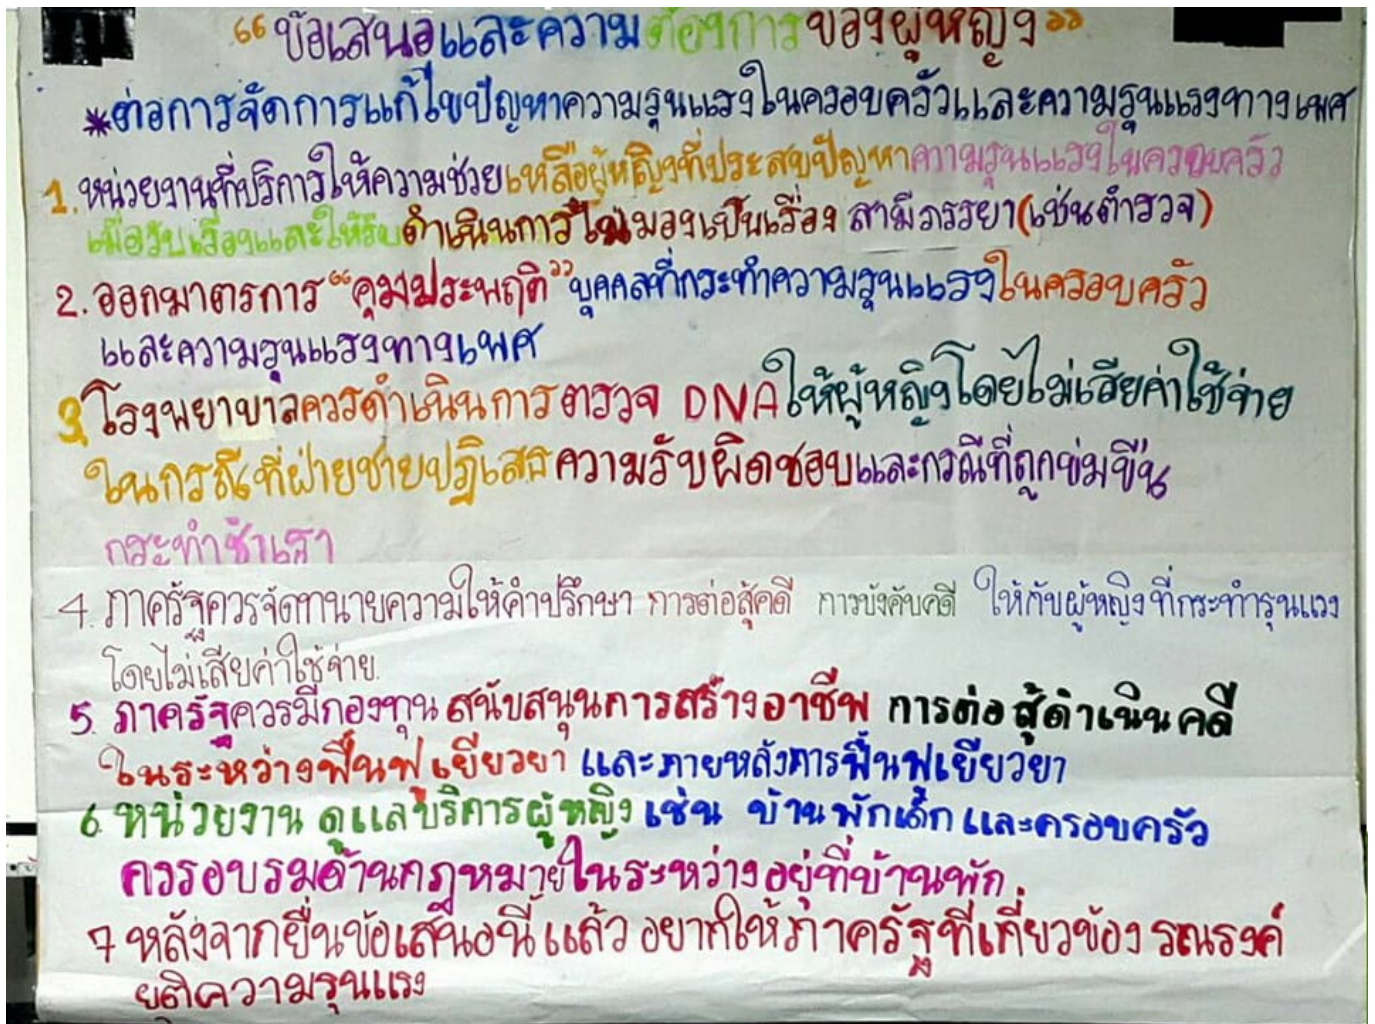 “ข้อเสนอและความต้องการของผู้หญิง”
*ต่อการจัดการแก้ไขปัญหาความรุนแรงในครอบครัวและความรุนแรงทางเพศ
1. หน่วยงานที่บริการให้ความช่วยเหลือผู้หญิงที่ประสบปัญหาความรุนแรงในครอบครัว
เมื่อรับเรื่องและให้รีบดำเนินการไม่มองเป็นเรื่อง สามีภรรยา(เช่นตำรวจ)
2. ออกมาตรการ “คุมประพฤติ” บุคคลที่กระทำความรุนแรงในครอบครัว
และความรุนแรงทางเพศ
3. โรงพยาบาลควรดำเนินการตรวจ DNA ให้ผู้หญิงโดยไม่เสียค่าใช้จ่าย
ในกรณีที่ฝ่ายชายปฏิเสธความรับผิดชอบและกรณีที่ถูกข่มขืน
กระทำชำเรา
4. ภาครัฐควรจัดทนายความให้คำปรึกษา การต่อสู้คดี การบังคับคดี ให้กับผู้หญิงที่กระทำรุนแรง
โดยไม่เสียค่าใช้จ่าย.
5. ภาครัฐควรมีกองทุน สนับสนุนการสร้างอาชีพ การต่อสู้ดำเนินคดี
ในระหว่างฟื้นฟู เยียวยา และภายหลังการฟื้นฟูเยียวยา
6. หน่วยงาน ดูแลบริการผู้หญิง เช่น บ้านพักเด็ก และครอบครัว
ควรอบรมด้านกฎหมายในระหว่างอยู่ที่บ้านพัก
7 หลังจากยื่นข้อเสนอนี้แล้ว อยากให้ภาครัฐที่เกี่ยวข้อง รณรงค์
ยุติความรุนแรง